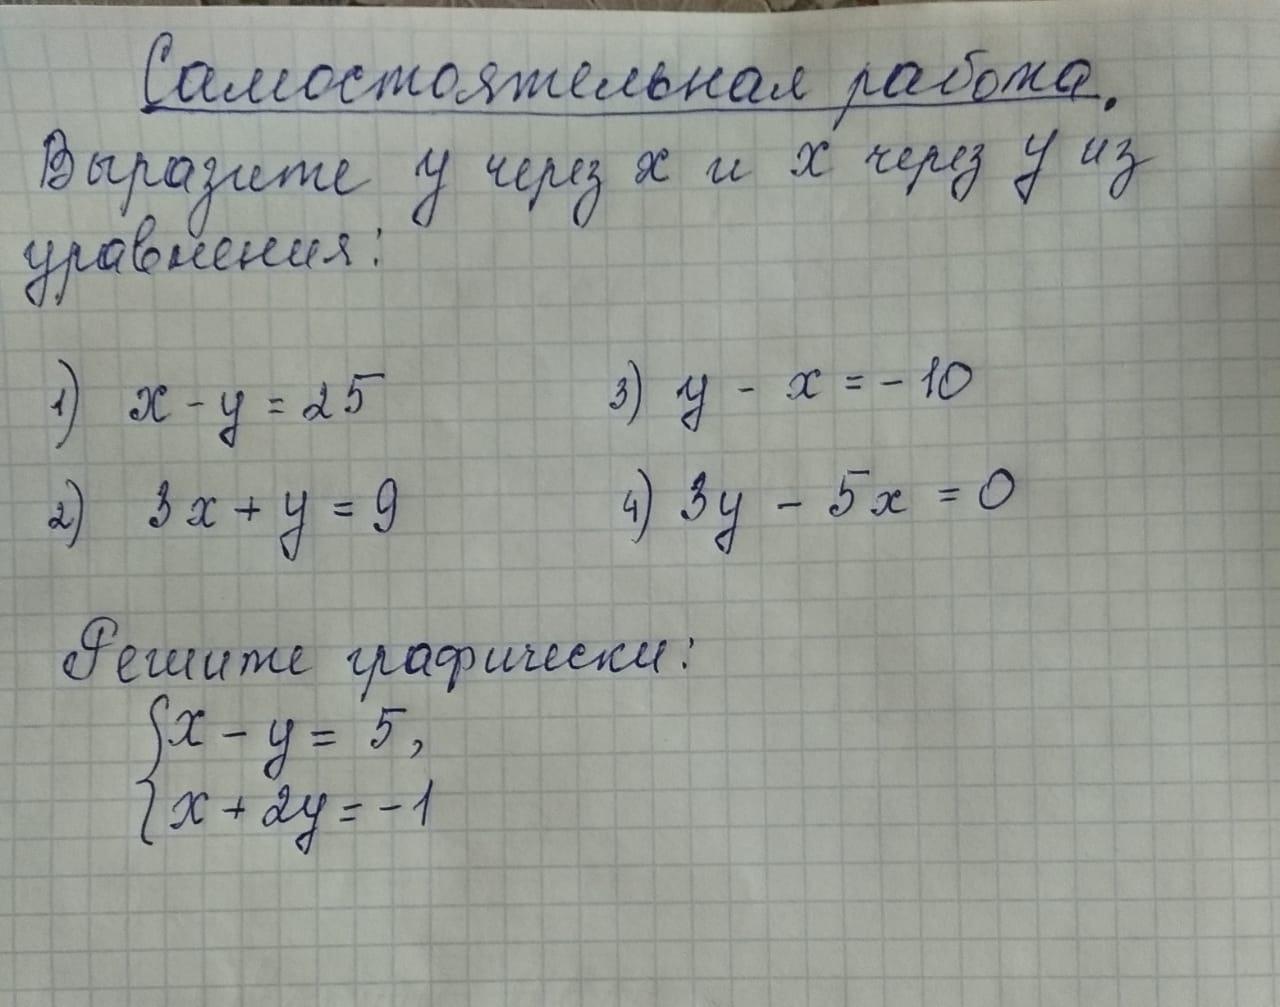 Самостоятельная работа.
Выразите у через х и х через у из
уравнения:
1) x - y = 25
3) y - x = -10
2) 3x + y = 9
4) 3y - 5x = 0
Решите графически:
{x - y = 5,
{x + 2y = -1